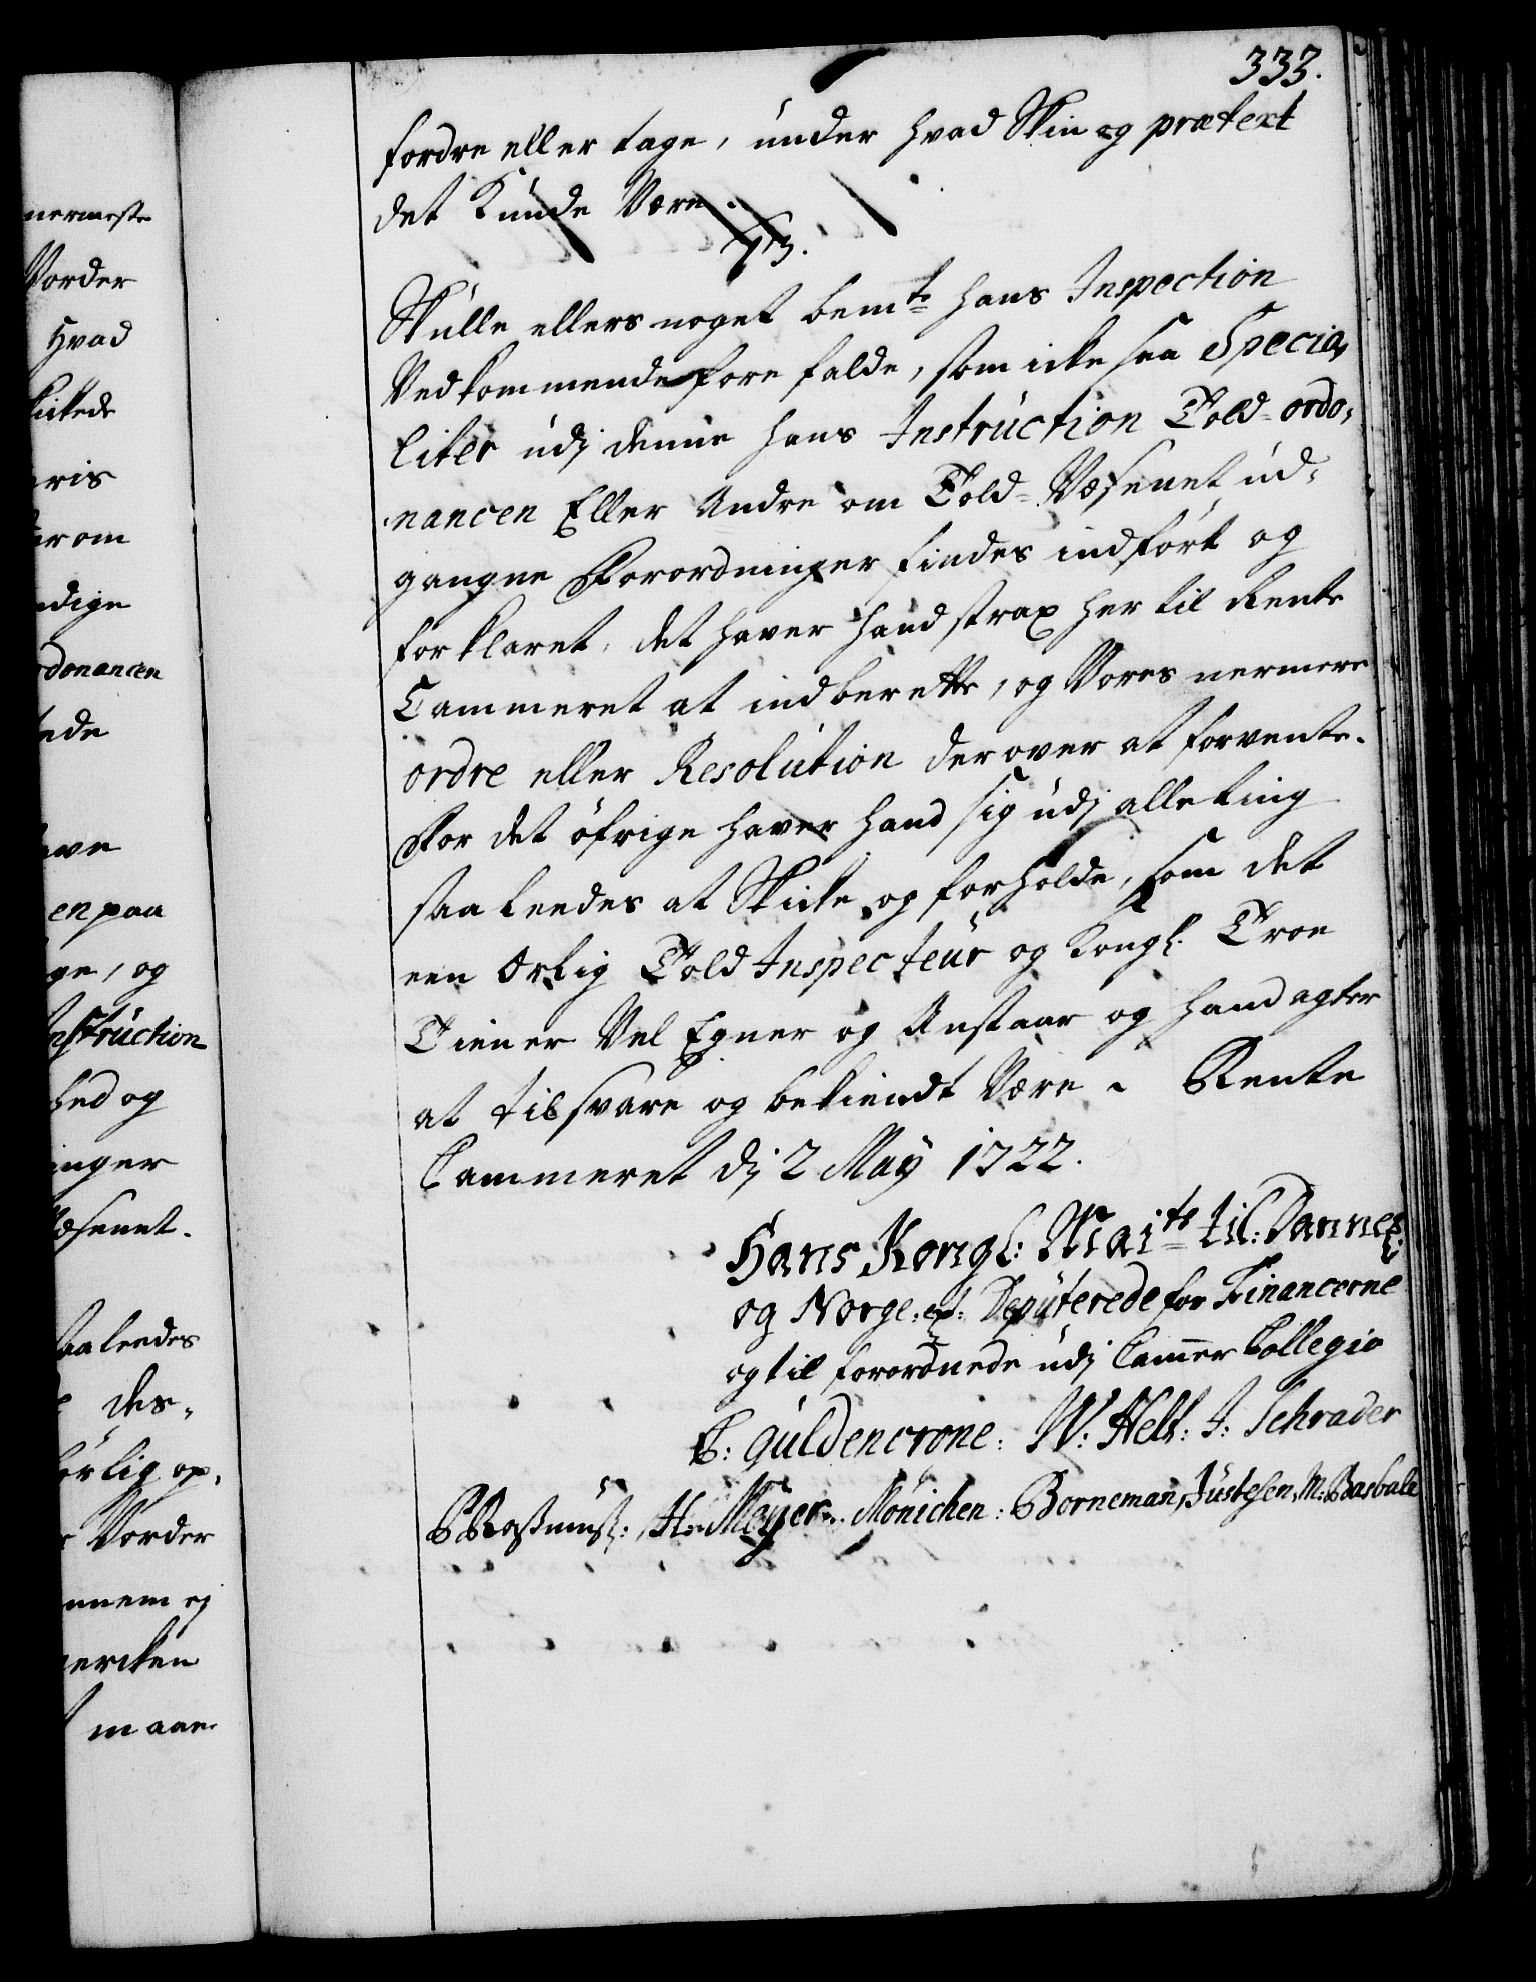 333.
fordre eller tage, under hvad Skin og prætext
det Kunde Være.
13.
Skulle ellers noget bemte hans Inspection
Vedkommende fore falde, som icke saa Specia,
liter udj denne hans Instruction Told-ordo,
nancen Eller Andre om Told-Væsenet ud,
gangne Forordninger findes indført og
forklaret, det haver hand strax her til Rente
Cammeret at indberette, og Vores nermere
ordre eller Resolution derover at forvente.
For det øfrige haver hand sig udj alle ting
saaleedes at Skicke og forholde, som det
een Ærlig Told Inspecteur og Kongl. Troe
Tiener Vel Egner og Anstaar og hand agter
at tilsvare og bekiendt Være. Rente
Cammeret dj 2 May 1722.
Hans Kongl: Maits til: Danne:
og Norge: Deputerede for Financerne
og til forordnede udj Camer Collegio
C: Guldencrone: W: Helt: J: Schrader
H: Meyer. Mönichen: Borneman, Justesen, M: Basballe
nermeste
Vorder
Hvad
ris
er om
dige
donancen
ede
en paa
ge, og
nstruction
hed og
inger
æsenet.
aaleedes
des,
ørlig op,
Vorder
nnem og
ercken
maane